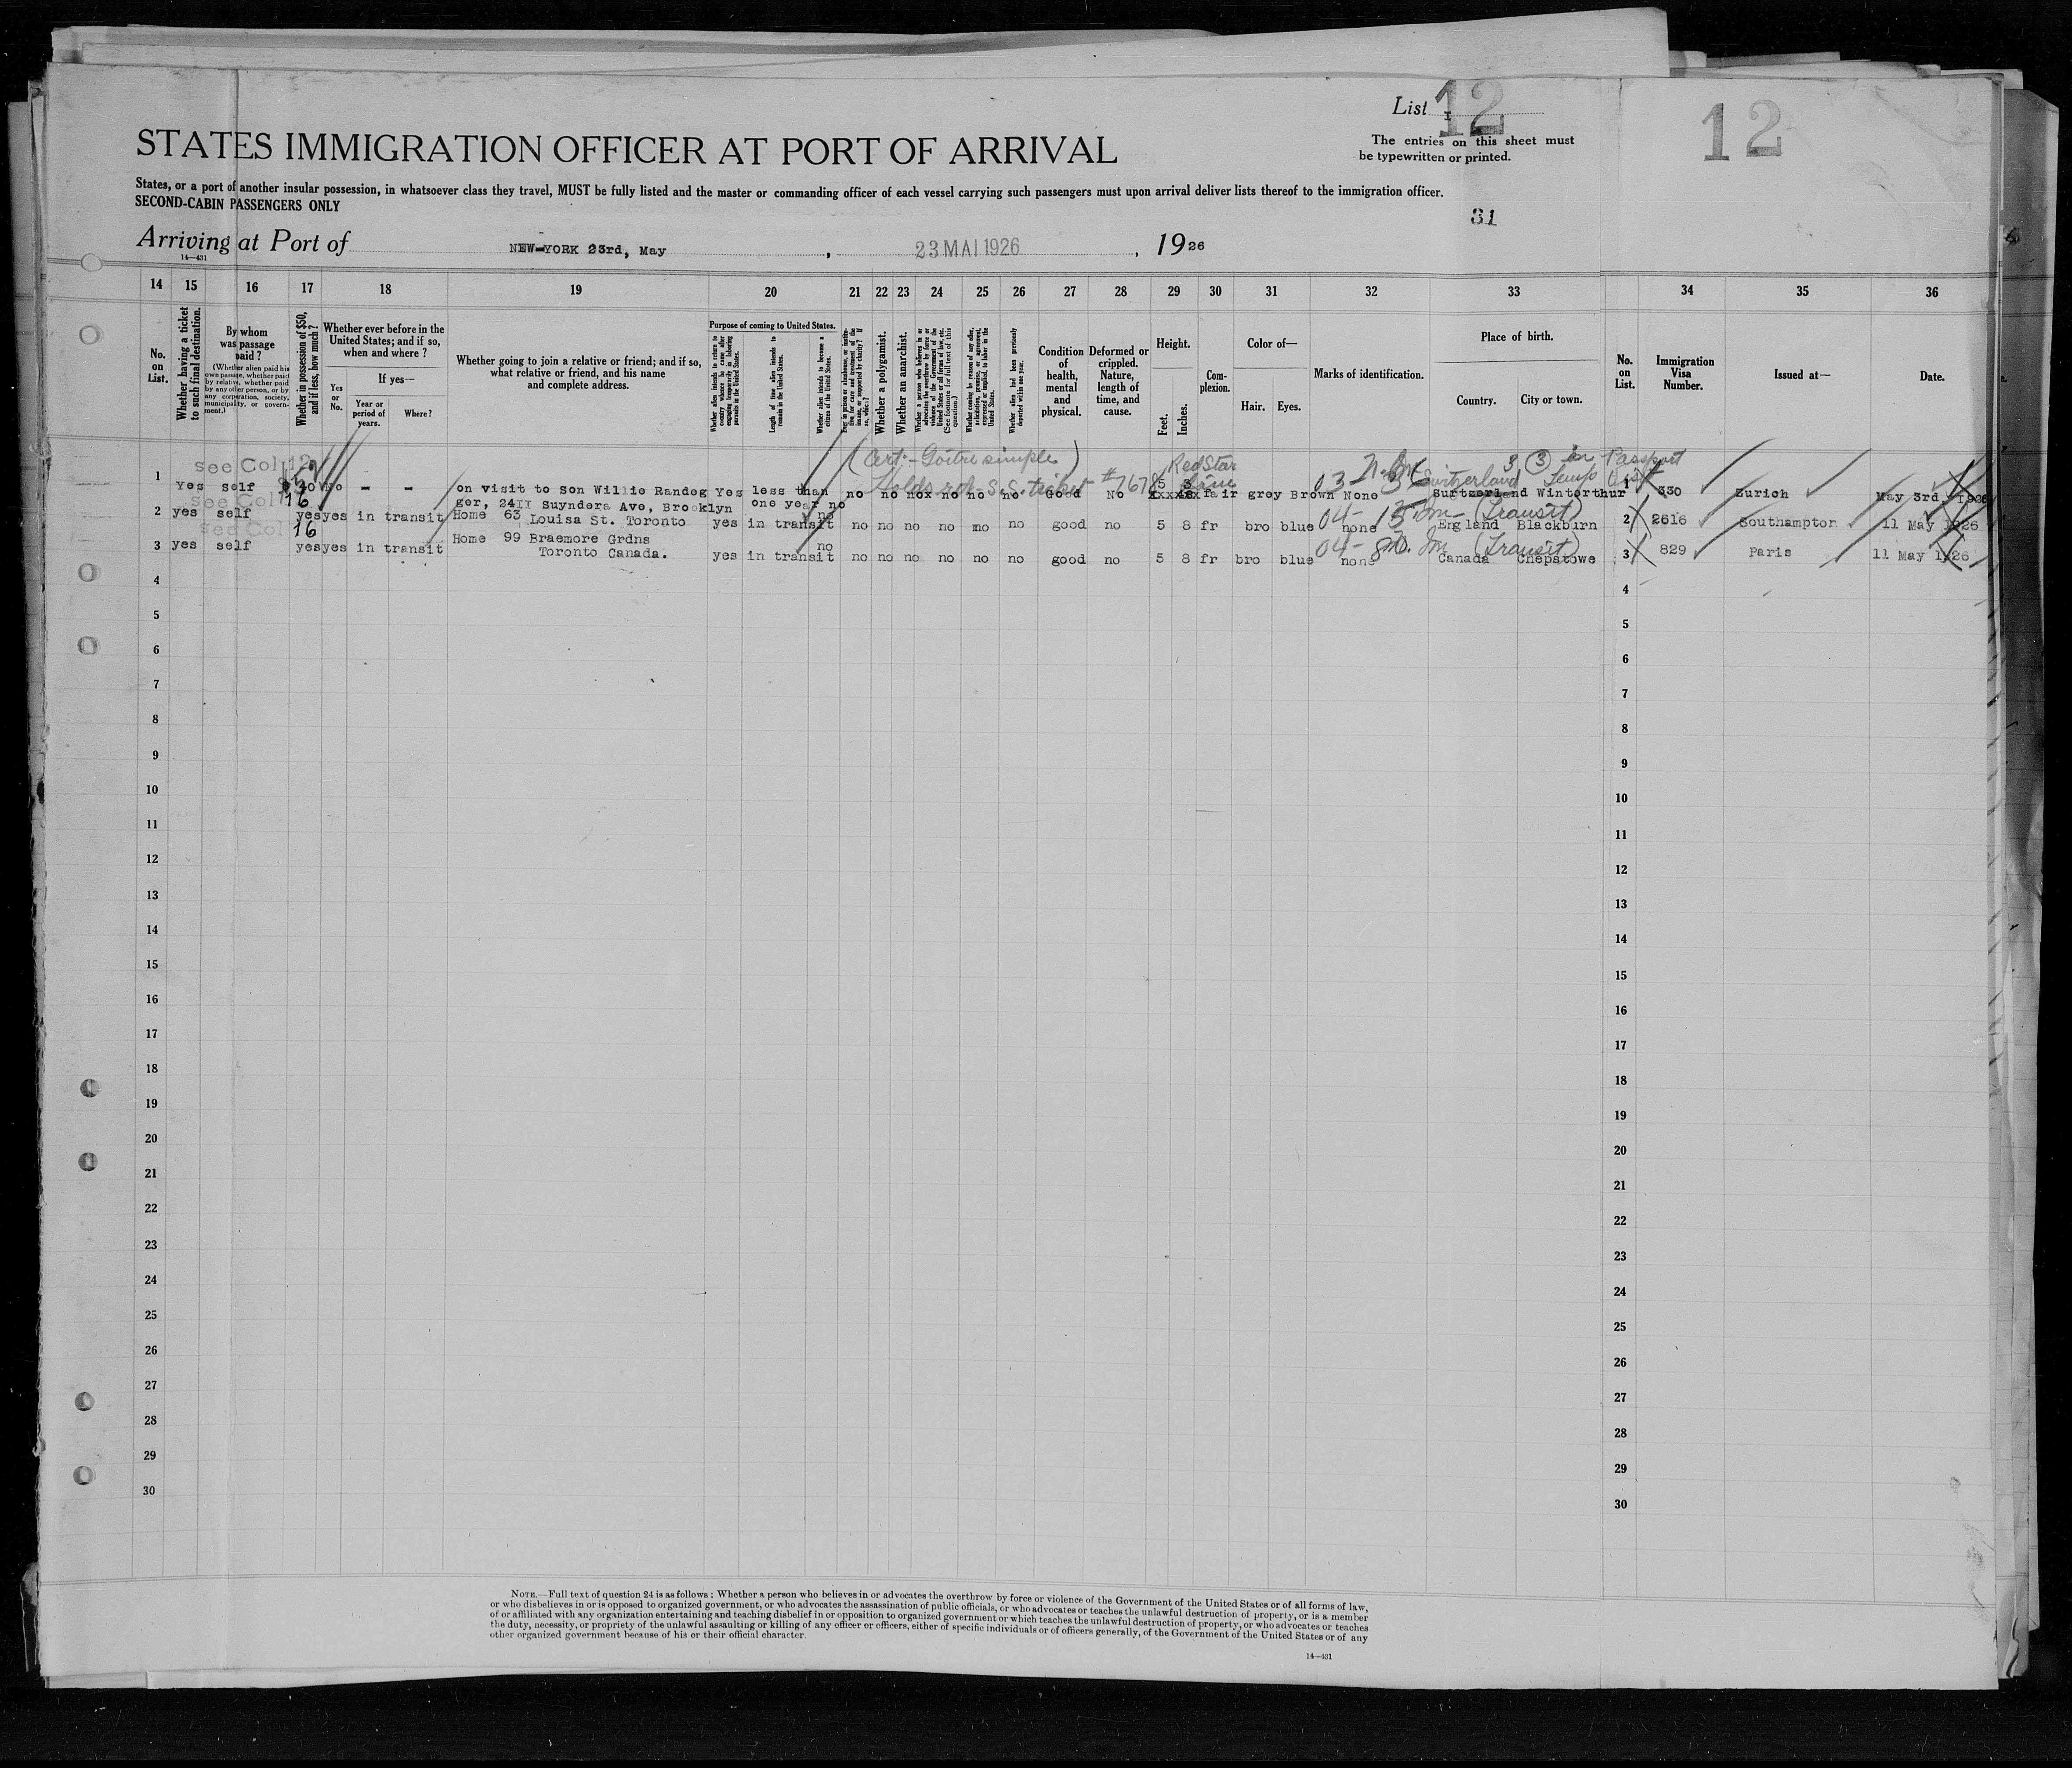 List 12
12
The entries on this sheet must
be typewritten or printed.
STATES IMMIGRATION OFFICER AT PORT OF ARRIVAL
States, or a port of another insular possession, in whatsoever class they travel, MUST be fully listed and the master or commanding officer of each vessel carrying such passengers must upon arrival deliver lists thereof to the immigration officer.
SECOND-CABIN PASSENGERS ONLY
31
Arriving at Port of NEW-YORK 23rd, May , 23 MAI 1926 , 1926
14—431
14 15 16 17 18 19 20 21 22 23 24 25 26 27 28 29 30 31 32 33 34 35 36
No. on List.
Whether having a ticket to such final destination.
By whom was passage paid?
(Whether alien paid his own passage, whether paid by relative, whether paid by any other person, or by any corporation, society, municipality, or government.)
Whether in possession of $50, and if less, how much?
Whether ever before in the United States; and if so, when and where?
Yes or No.
If yes—
Year or period of years.
Where?
Whether going to join a relative or friend; and if so, what relative or friend, and his name and complete address.
Purpose of coming to United States.
Whether alien intends to return to country whence he came after engaging temporarily in laboring pursuits in the United States.
Length of time alien intends to remain in the United States.
Whether alien intends to become a citizen of the United States.
Ever in prison or almshouse, or institution for care and treatment of the insane, or supported by charity? If so, which?
Whether a polygamist.
Whether an anarchist.
Whether a person who believes in or advocates the overthrow by force or violence of the Government of the United States or all forms of law, etc. (See footnote for full text of this question.)
Whether coming by reason of any offer, solicitation, promise, or agreement, expressed or implied, to labor in the United States.
Whether alien had been previously deported within one year.
Condition of health, mental and physical.
Deformed or crippled. Nature, length of time, and cause.
Height.
Feet.
Inches.
Complexion.
Color of—
Hair.
Eyes.
Marks of identification.
Place of birth.
Country.
City or town.
No. on List.
Immigration Visa Number.
Issued at—
Date.
see Col 12
(Cert:- Goitre simple)
Red Star Line
Holds ret. S.S. ticket #7678
03 Switzerland 3 (3) in Passport
1 Yes self $ 40 No - - on visit to Son Willie Randeg Yes less than no no nox no no no Good No 5 3 fair grey Brown None Surtzerland Winterthur 1 330 Zurich May 3rd 1926
see Col 16
ger, 24II Suyndera Ave, Brooklyn one year no
04- (Transit)
2 yes self yes yes in transit Home 63 Louisa St. Toronto yes in transit no no no no no mo no good no 5 8 fr bro blue none England Blackburn 2 2616 Southampton 11 May 1926
see Col 16
04- (Transit)
3 yes self yes yes in transit Home 99 Braemore Grdns
Toronto Canada. yes in transit no no no no no no no good no 5 8 fr bro blue none Canada Chepstowe 3 829 Paris 11 May 1926
4 4
5 5
6 6
7 7
8 8
9 9
10 10
11 11
12 12
13 13
14 14
15 15
16 16
17 17
18 18
19 19
20 20
21 21
22 22
23 23
24 24
25 25
26 26
27 27
28 28
29 29
30 30
NOTE.—Full text of question 24 is as follows: Whether a person who believes in or advocates the overthrow by force or violence of the Government of the United States or of all forms of law,
or who disbelieves in or is opposed to organized government, or who advocates the assassination of public officials, or who advocates or teaches the unlawful destruction of property, or is a member
of or affiliated with any organization entertaining and teaching disbelief in or opposition to organized government or which teaches the unlawful destruction of property, or who advocates or teaches
the duty, necessity, or propriety of the unlawful assaulting or killing of any officer or officers, either of specific individuals or of officers generally, of the Government of the United States or of any
other organized government because of his or their official character.
14—431